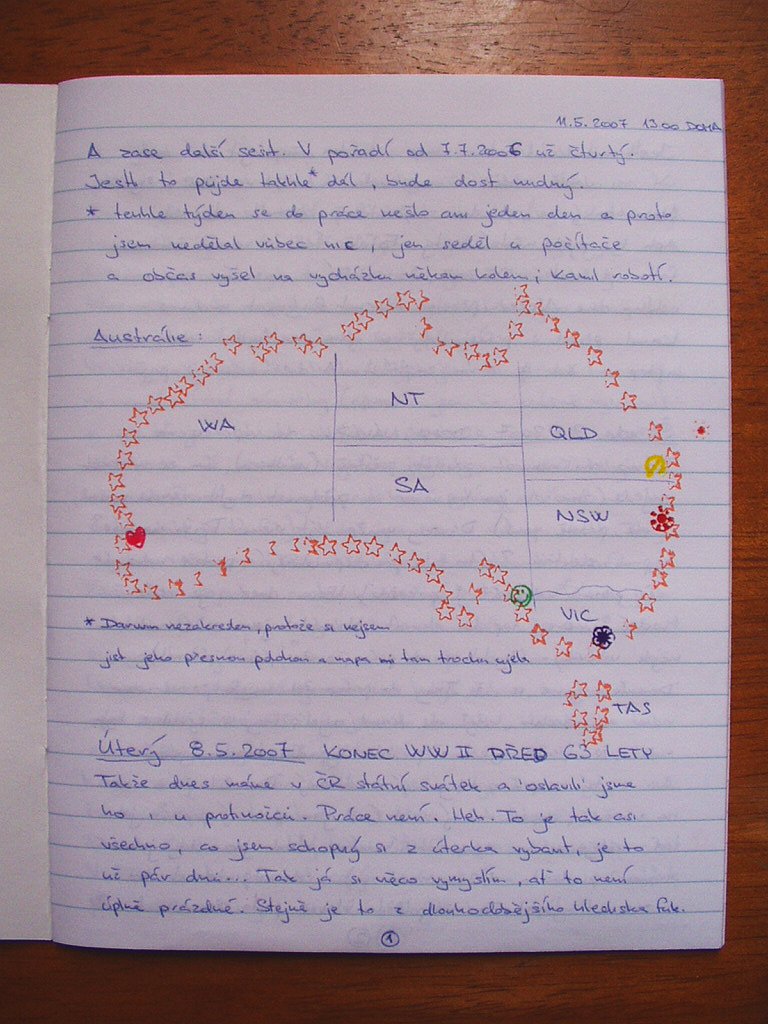 11.5.2007 13:00 DOMA
A zase další sešit. V pořadí od 7.7.2006 už čtvrtý.
Jestli to půjde takhle* dál, bude dost nudný.
* tenhle týden se do práce nešlo ani jeden den a proto
jsem nedělal vůbec nic, jen seděl u počítače
a občas vyšel na vycházku někam kolem; Kamil robotí.
Austrálie:
NT
WA
QLD
SA
NSW
VIC
* Darwin nezakreslen, protože si nejsem
jist jeho přesnou polohou a mapa mi tam trochu ujela
TAS
Úterý 8.5.2007 KONEC WW II PŘED 63 LETY
Takže dnes máme v ČR státní svátek a 'oslavili' jsme
ho i u protinožců. Práce není. Heh. To je tak asi
všechno, co jsem schopný si z úterka vybavit, je to
už pár dní... Tak já si něco vymyslím, ať to není
úplně prázdné. Stejně je to z dlouhodobějšího hlediska fuk.
1